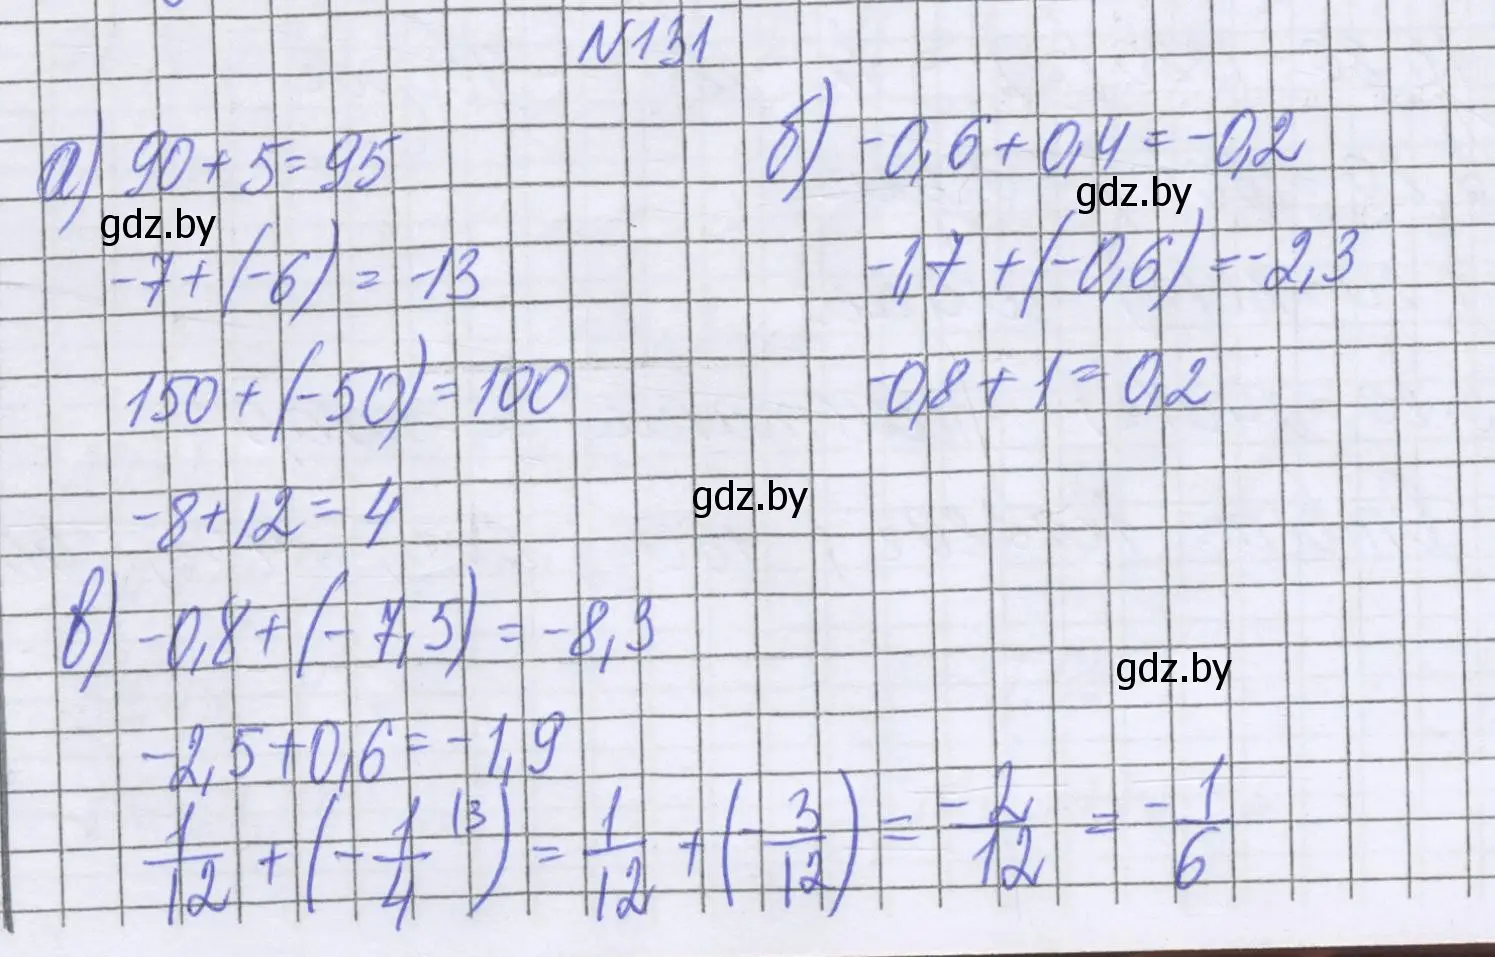 N131
а) 90 + 5 = 95
-7 + (-6) = -13
150 + (-50) = 100
-8 + 12 = 4
б) -0,6 + 0,4 = -0,2
-1,7 + (-0,6) = -2,3
-0,8 + 1 = 0,2
в) -0,8 + (-7,5) = -8,3
-2,5 + 0,6 = -1,9
1/12 + (-1/4 |3) = 1/12 + (-3/12) = -2/12 = -1/6
gdz.by
gdz.by
gdz.by
gdz.by